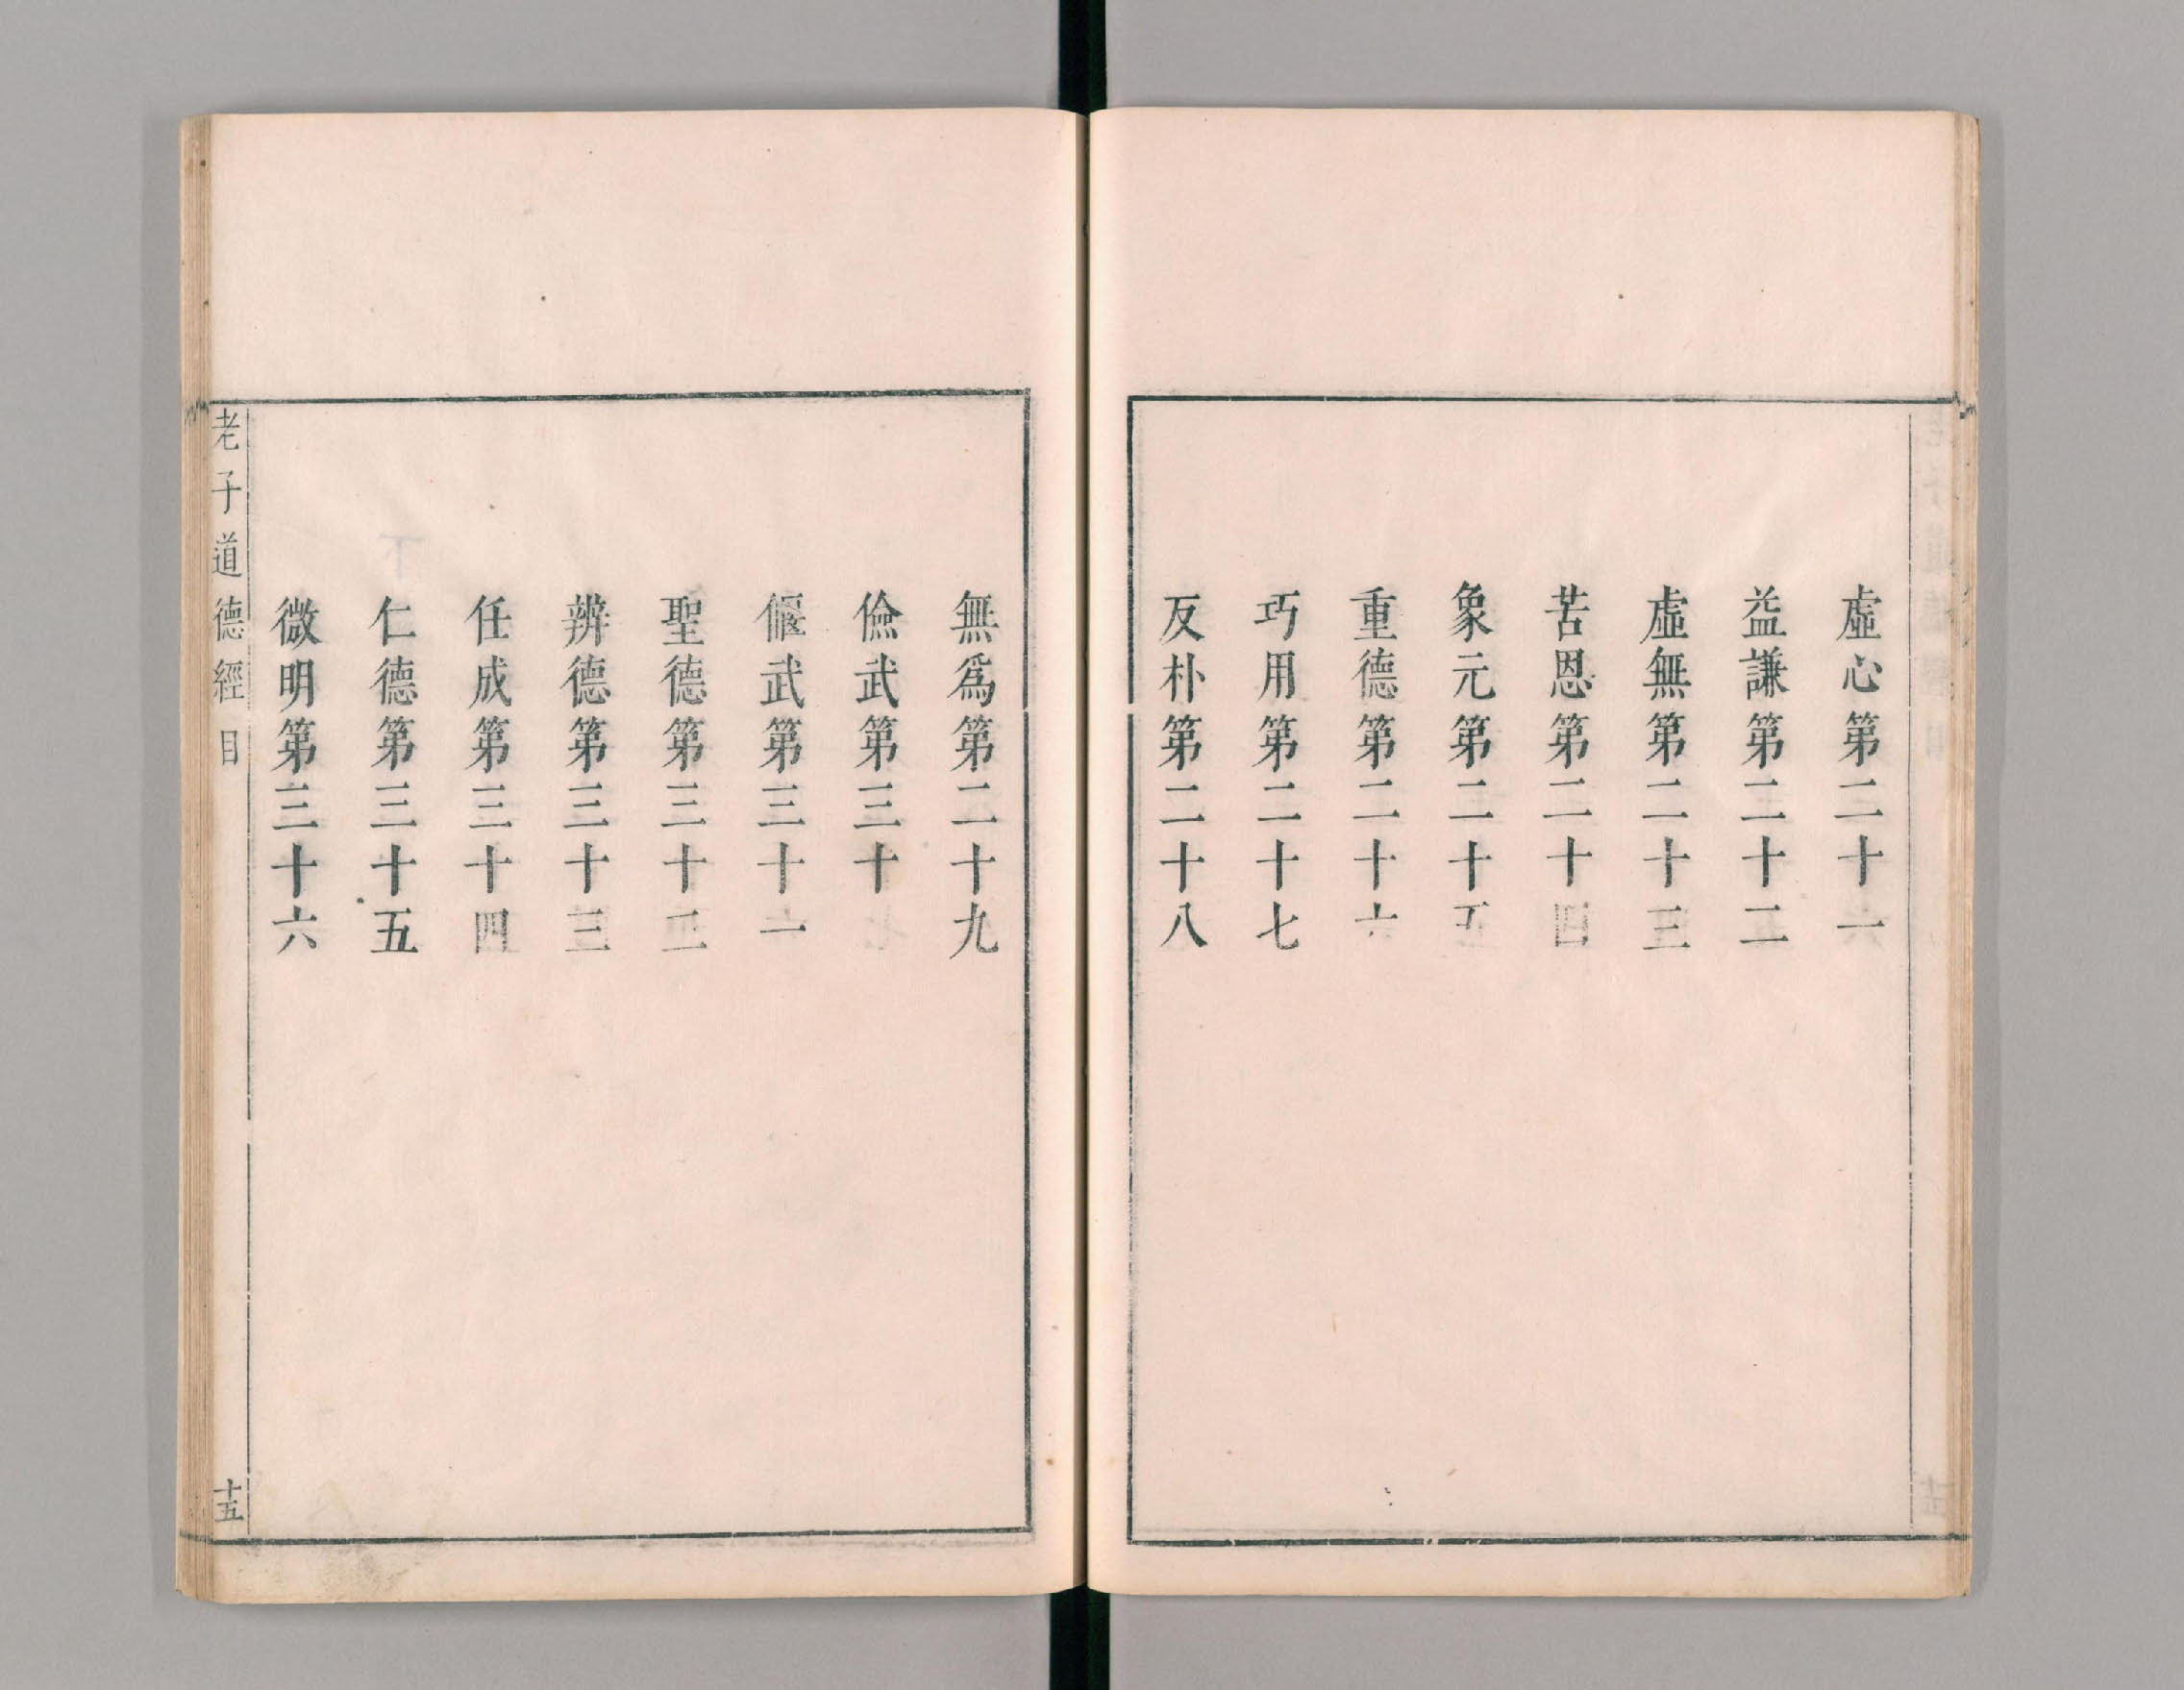 虛心第二十一
益謙第二十二
虛無第二十三
苦恩第二十四
象元第二十五
重德第二十六
巧用第二十七
反朴第二十八
無爲第二十九
儉武第三十
偃武第三十一
聖德第三十二
辨德第三十三
任成第三十四
仁德第三十五
微明第三十六
老子道德經 目
十五